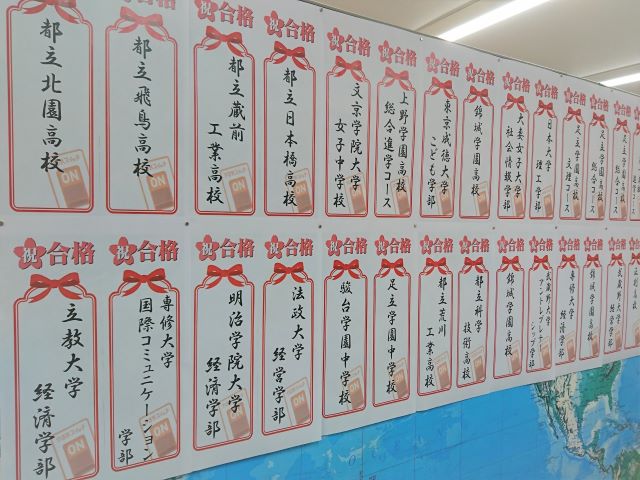 祝合格
都立北園高校
祝合格
都立飛鳥高校
祝合格
都立蔵前
工業高校
祝合格
都立日本橋高校
祝合格
文京学院大学
女子中学校
祝合格
上野学園高校
総合進学コース
祝合格
東京成徳大学
こども学部
祝合格
錦城学園高校
祝合格
大妻女子大学
社会情報学部
祝合格
日本大学
理工学部
祝合格
足立学園高校
文理コース
祝合格
足立学園高校
総合コース
祝合格
立教大学
経済学部
祝合格
専修大学
国際コミュニケーション
学部
祝合格
明治学院大学
経済学部
祝合格
法政大学
経営学部
祝合格
駿台学園中学校
祝合格
足立学園中学校
祝合格
都立荒川
工業高校
祝合格
都立科学
技術高校
祝合格
錦城学園高校
祝合格
武蔵野大学
アントレプレナー
シップ学部
祝合格
専修大学
経済学部
祝合格
錦城学園高校
祝合格
武蔵野大学
経済学部
ON